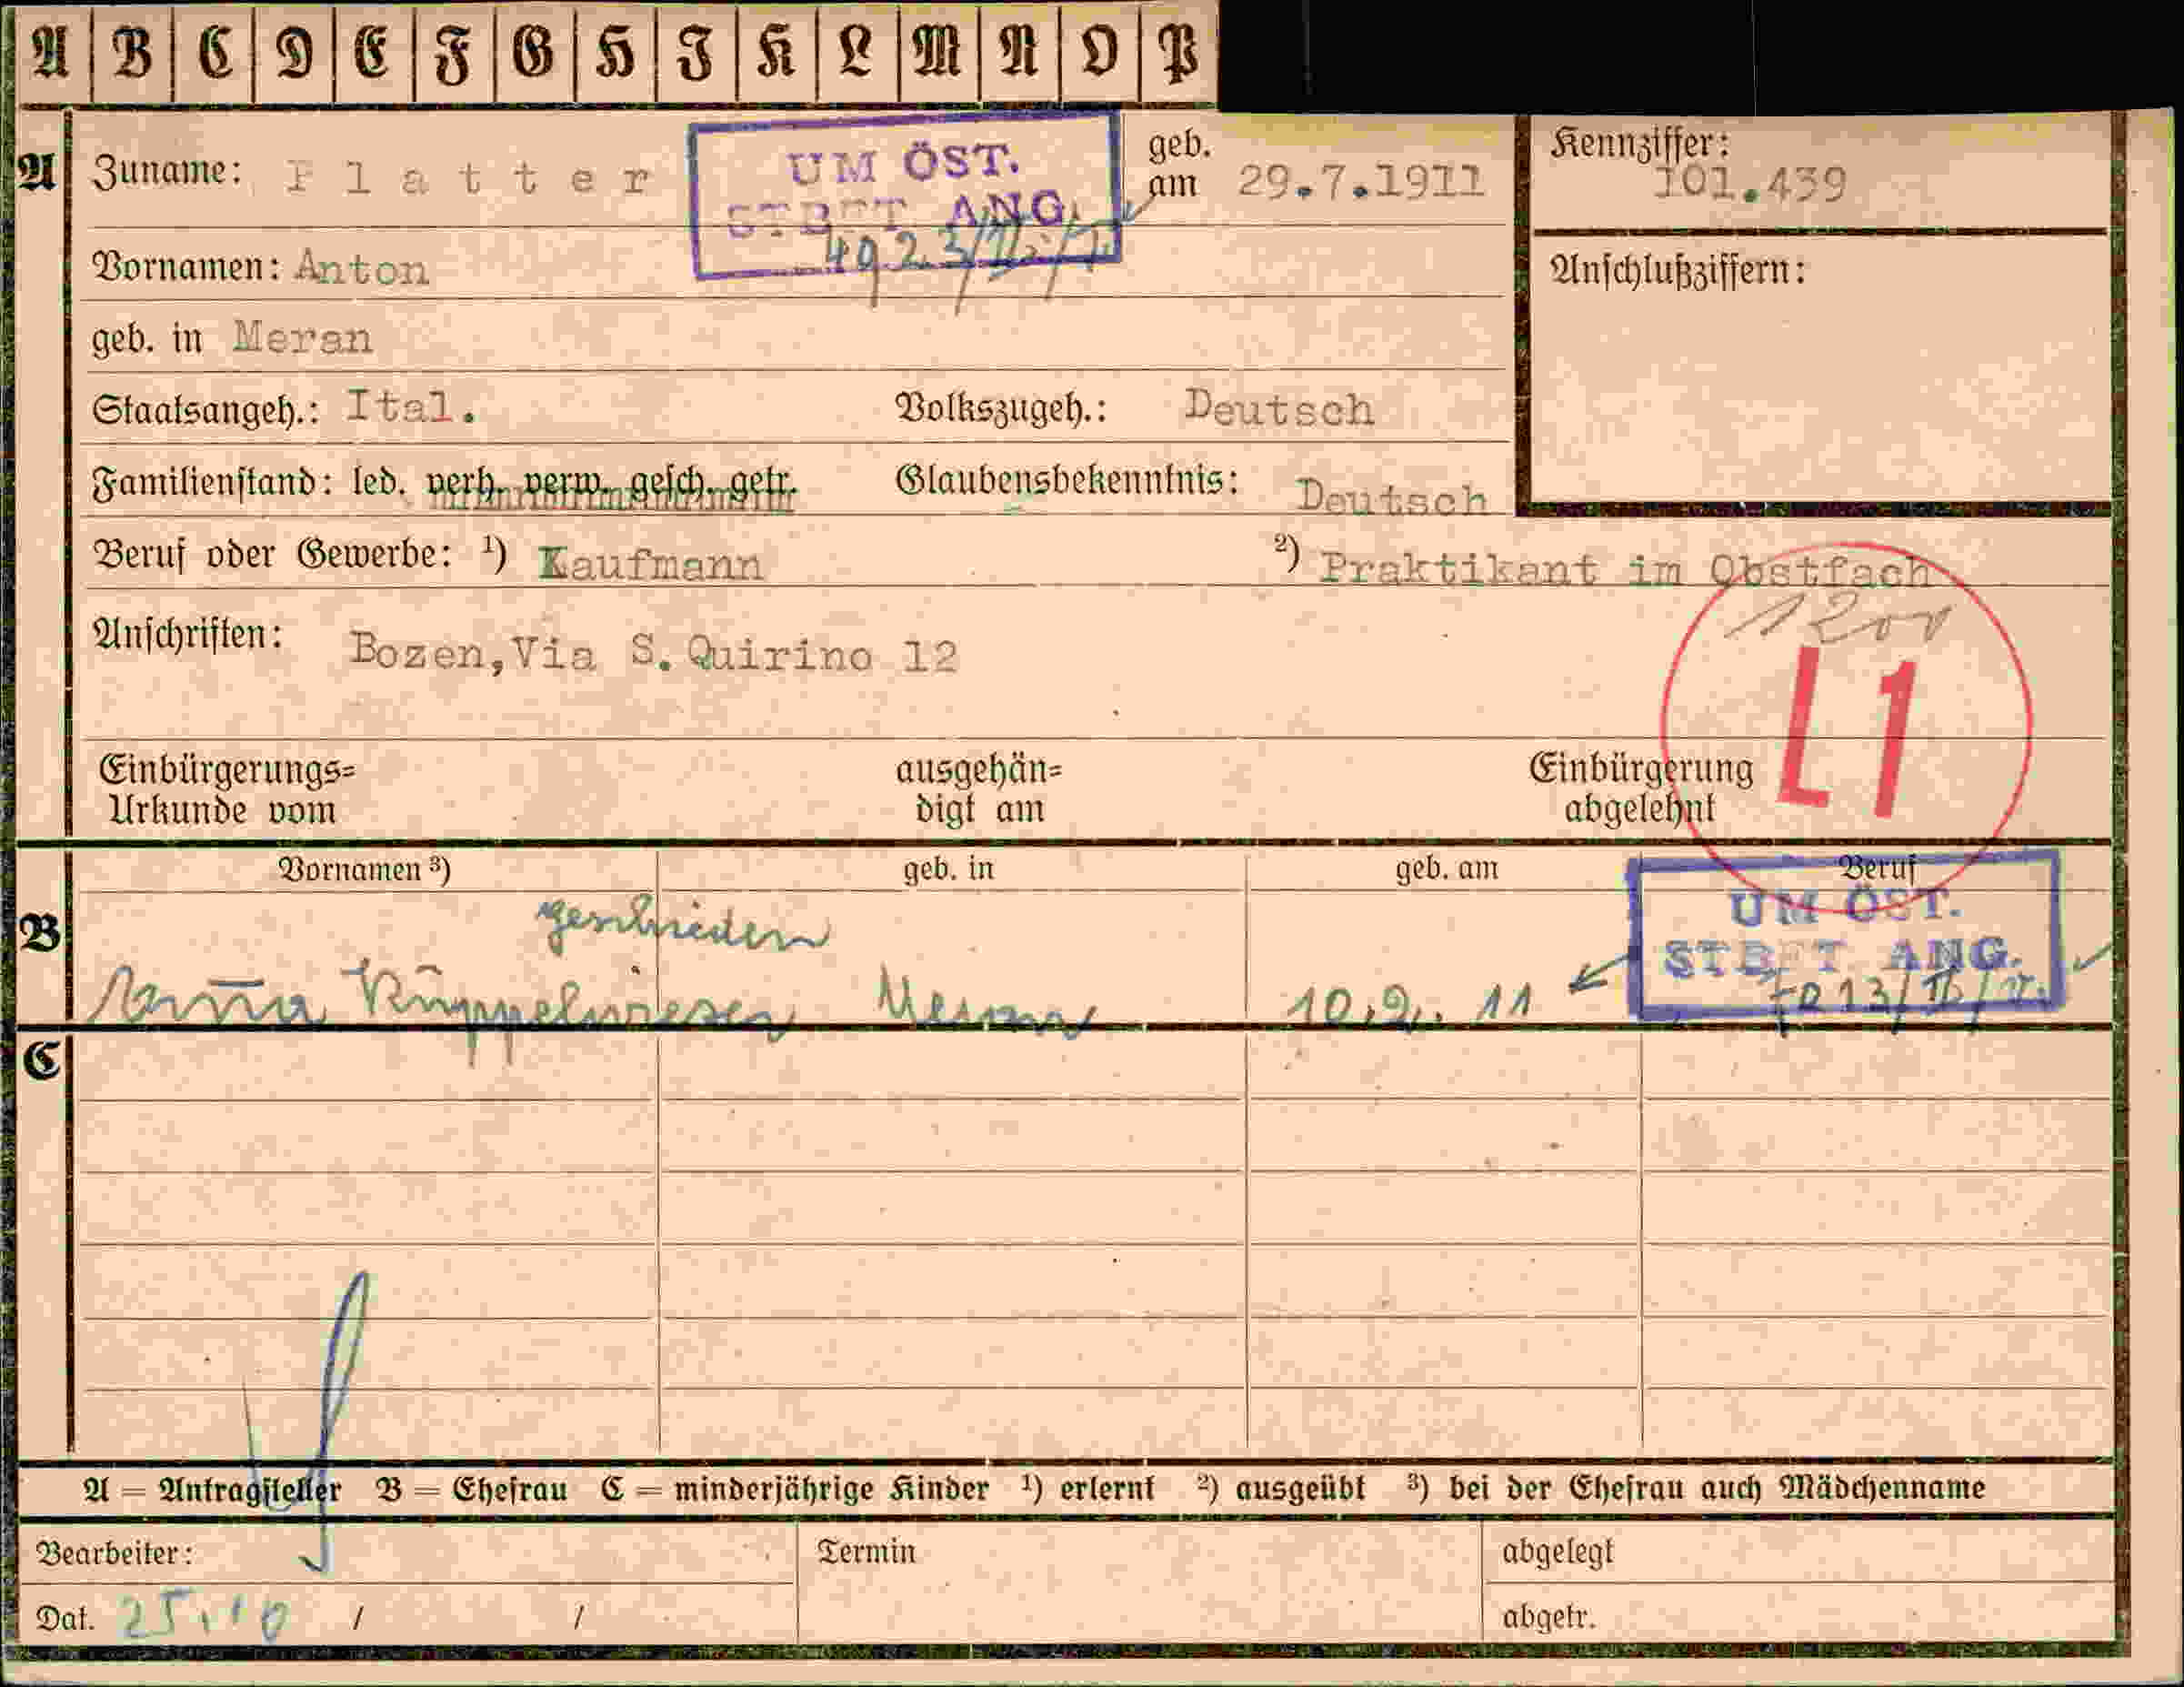 A B C D E F G H I K L M N O P
A Zuname: Platter
UM ÖST.
STBFT ANG.
geb.
am 29.7.1911
Kennziffer:
101.439
Vornamen: Anton
Anschlußziffern:
geb. in Meran
Staatsangeh.: Ital. Volkszugeh.: Deutsch
Familienstand: led. verh. verw. gesch. getr. Glaubensbekenntnis: Deutsch
Beruf oder Gewerbe: ¹) Kaufmann ²) Praktikant im Obstfach
Anschriften: Bozen,Via S.Quirino 12
L1
Einbürgerungs= ausgehän= Einbürgerung
Urkunde vom digt am abgelehnt
Vornamen ³) geb. in geb. am Beruf
B geschieden
UM ÖST.
STBFT ANG.
Anna Rüppelwieser Meran 10.2. 11
C
A = Antragsteller B = Ehefrau C = minderjährige Kinder ¹) erlernt ²) ausgeübt ³) bei der Ehefrau auch Mädchenname
Bearbeiter: Termin abgelegt
Dat. 25.10 / / abgetr.